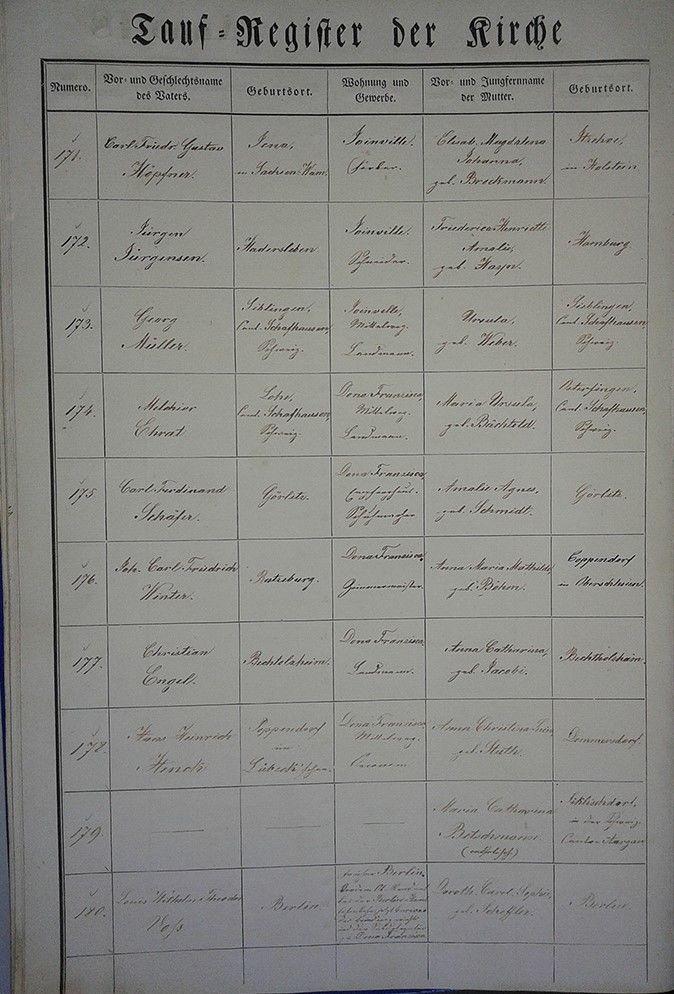 Tauf-Register der Kirche
Numero.
Vor- und Geschlechtsname
des Vaters.
Geburtsort.
Wohnung und
Gewerbe.
Vor- und Jungfernname
der Mutter.
Geburtsort.
171.
Carl Friedr. Gustav
Höpfner.
Jena,
in Sachsen-Weim.
Joinville.
Färber.
Elisab. Magdalena
Johanna,
geb. Brockmann.
Itzehoe,
in Holstein
172.
Jürgen
Jürgensen.
Hadersleben
Joinville.
Schneider.
Friederica Henriette
Amalie,
geb. Hayn.
Hamburg.
173.
Georg
Müller.
Siblingen,
Cant. Schafhausen
Schweiz.
Joinville,
Mittelweg.
Landmann.
Ursula,
geb. Weber.
Siblingen,
Cant. Schafhausen
Schweiz.
174.
Melchior
Ehrat.
Lohn,
Cant. Schafhausen,
Schweiz.
Dona Francisca,
Mittelweg.
Landmann.
Maria Ursula,
geb. Bächtold.
Cant. Schafhausen,
Schweiz.
175
Carl Ferdinand
Schäfer.
Görlitz.
Dona Francisca
Schuhmacher
Amalie Agnes,
geb. Schmidt.
Görlitz.
176.
Joh. Carl Friedrich
Winter.
Ratzeburg.
Dona Francisca,
Anna Maria Mathilde
geb. Böhm.
Coppendorf
in Oberschlesien.
177.
Christian
Engel.
Bechtolsheim.
Dona Francisca,
Landmann.
Anna Catharina,
geb. Jacobi.
Bechtholsheim.
178.
Hans Heinrich
Hinch
Poppendorf
im
Lübeck'schen.
Dona Francisca,
Mittelweg.
Oeconom
Anna Christina
geb. Stuth.
Dommersdorf.
179.
Maria Catharina
(unehelich)
in der Schweiz
Canton Aargau
180.
Louis Wilhelm Theodor
Voss
Berlin
früher Berlin,
Dona Francisca
Doroth. Carol. Sophie,
geb. Scheffler.
Berlin